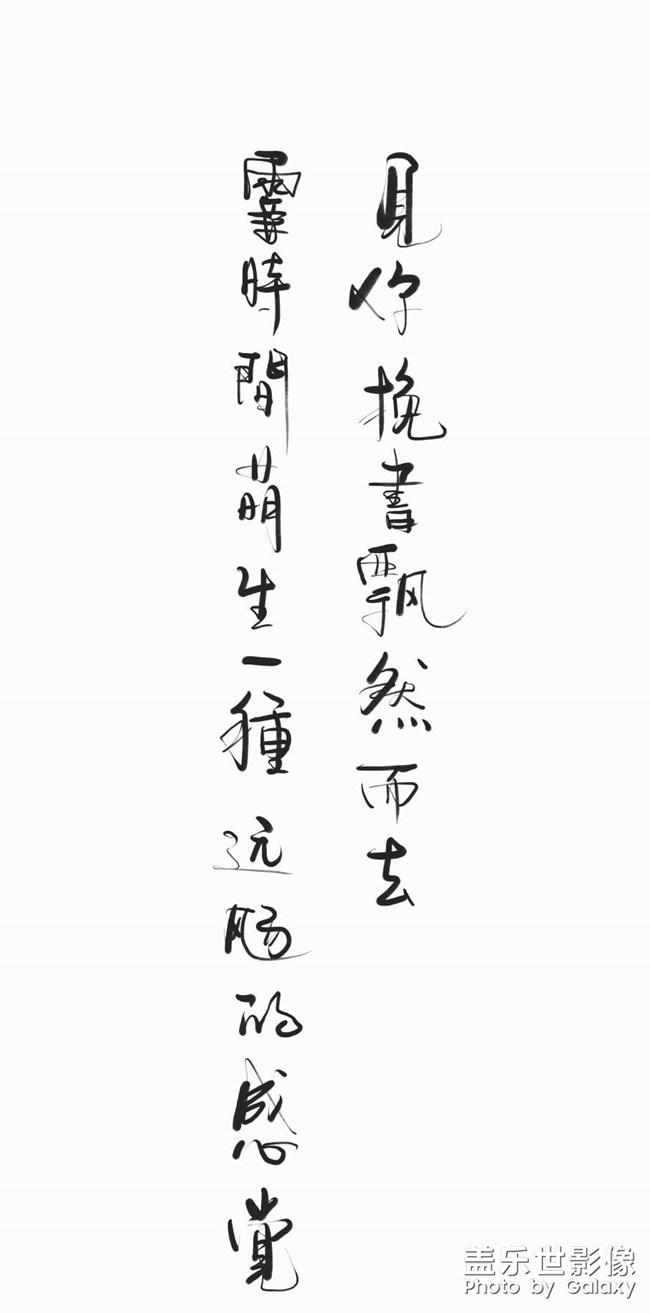 見你挽書飄然而去
霎時間萌生一種远肠的感覚
盖乐世影像
Photo by Galaxy